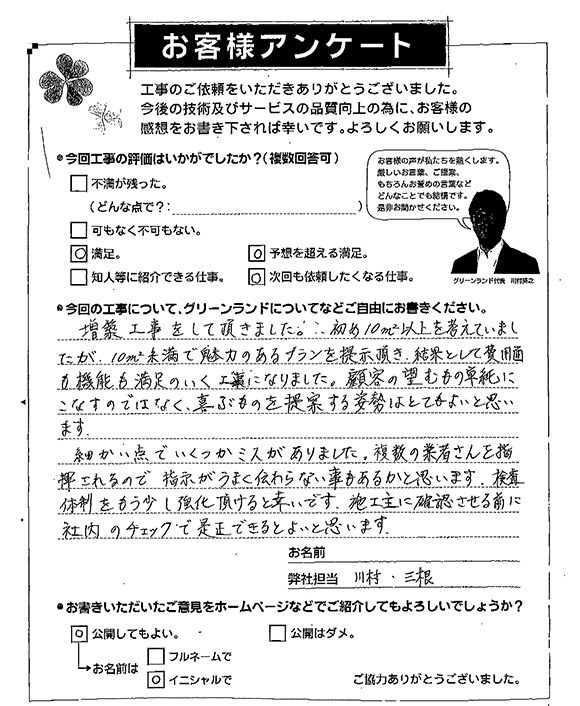 お客様アンケート
工事のご依頼をいただきありがとうございました。
今後の技術及びサービスの品質向上の為に、お客様の
感想をお書き下されば幸いです。よろしくお願いします。
今回工事の評価はいかがでしたか?(複数回答可)
不満が残った。
(どんな点で?: )
可もなく不可もない。
満足。
予想を超える満足。
知人等に紹介できる仕事。
次回も依頼したくなる仕事。
お客様の声が私たちを熱くします。
厳しいお言葉、ご提案、
もちろんお誉めの言葉など
どんなことでも結構です。
是非お聞かせください。
グリーンランド代表
今回の工事について、グリーンランドについてなどご自由にお書きください。
増築工事をして頂きました。初め10m²以上を考えていまし
たが、10m²未満で魅力のあるプランを提示頂き、結果として費用面
も機能も満足のいく工事になりました。顧客の望むもの単純に
こなすのではなく、喜ぶものを提案する姿勢はとてもよいと思い
ます。
細かい点でいくつかミスがありました。複数の業者さんを指
揮されるので指示がうまく伝わらない事もあるかと思います。検査
体制をもう少し強化頂けると幸いです。施工主に確認させる前に
社内のチェックで是正できるとよいと思います。
お名前
弊社担当 川村・三根
お書きいただいたご意見をホームページなどでご紹介してもよろしいでしょうか?
公開してもよい。
公開はダメ。
お名前は
フルネームで
イニシャルで
ご協力ありがとうございました。